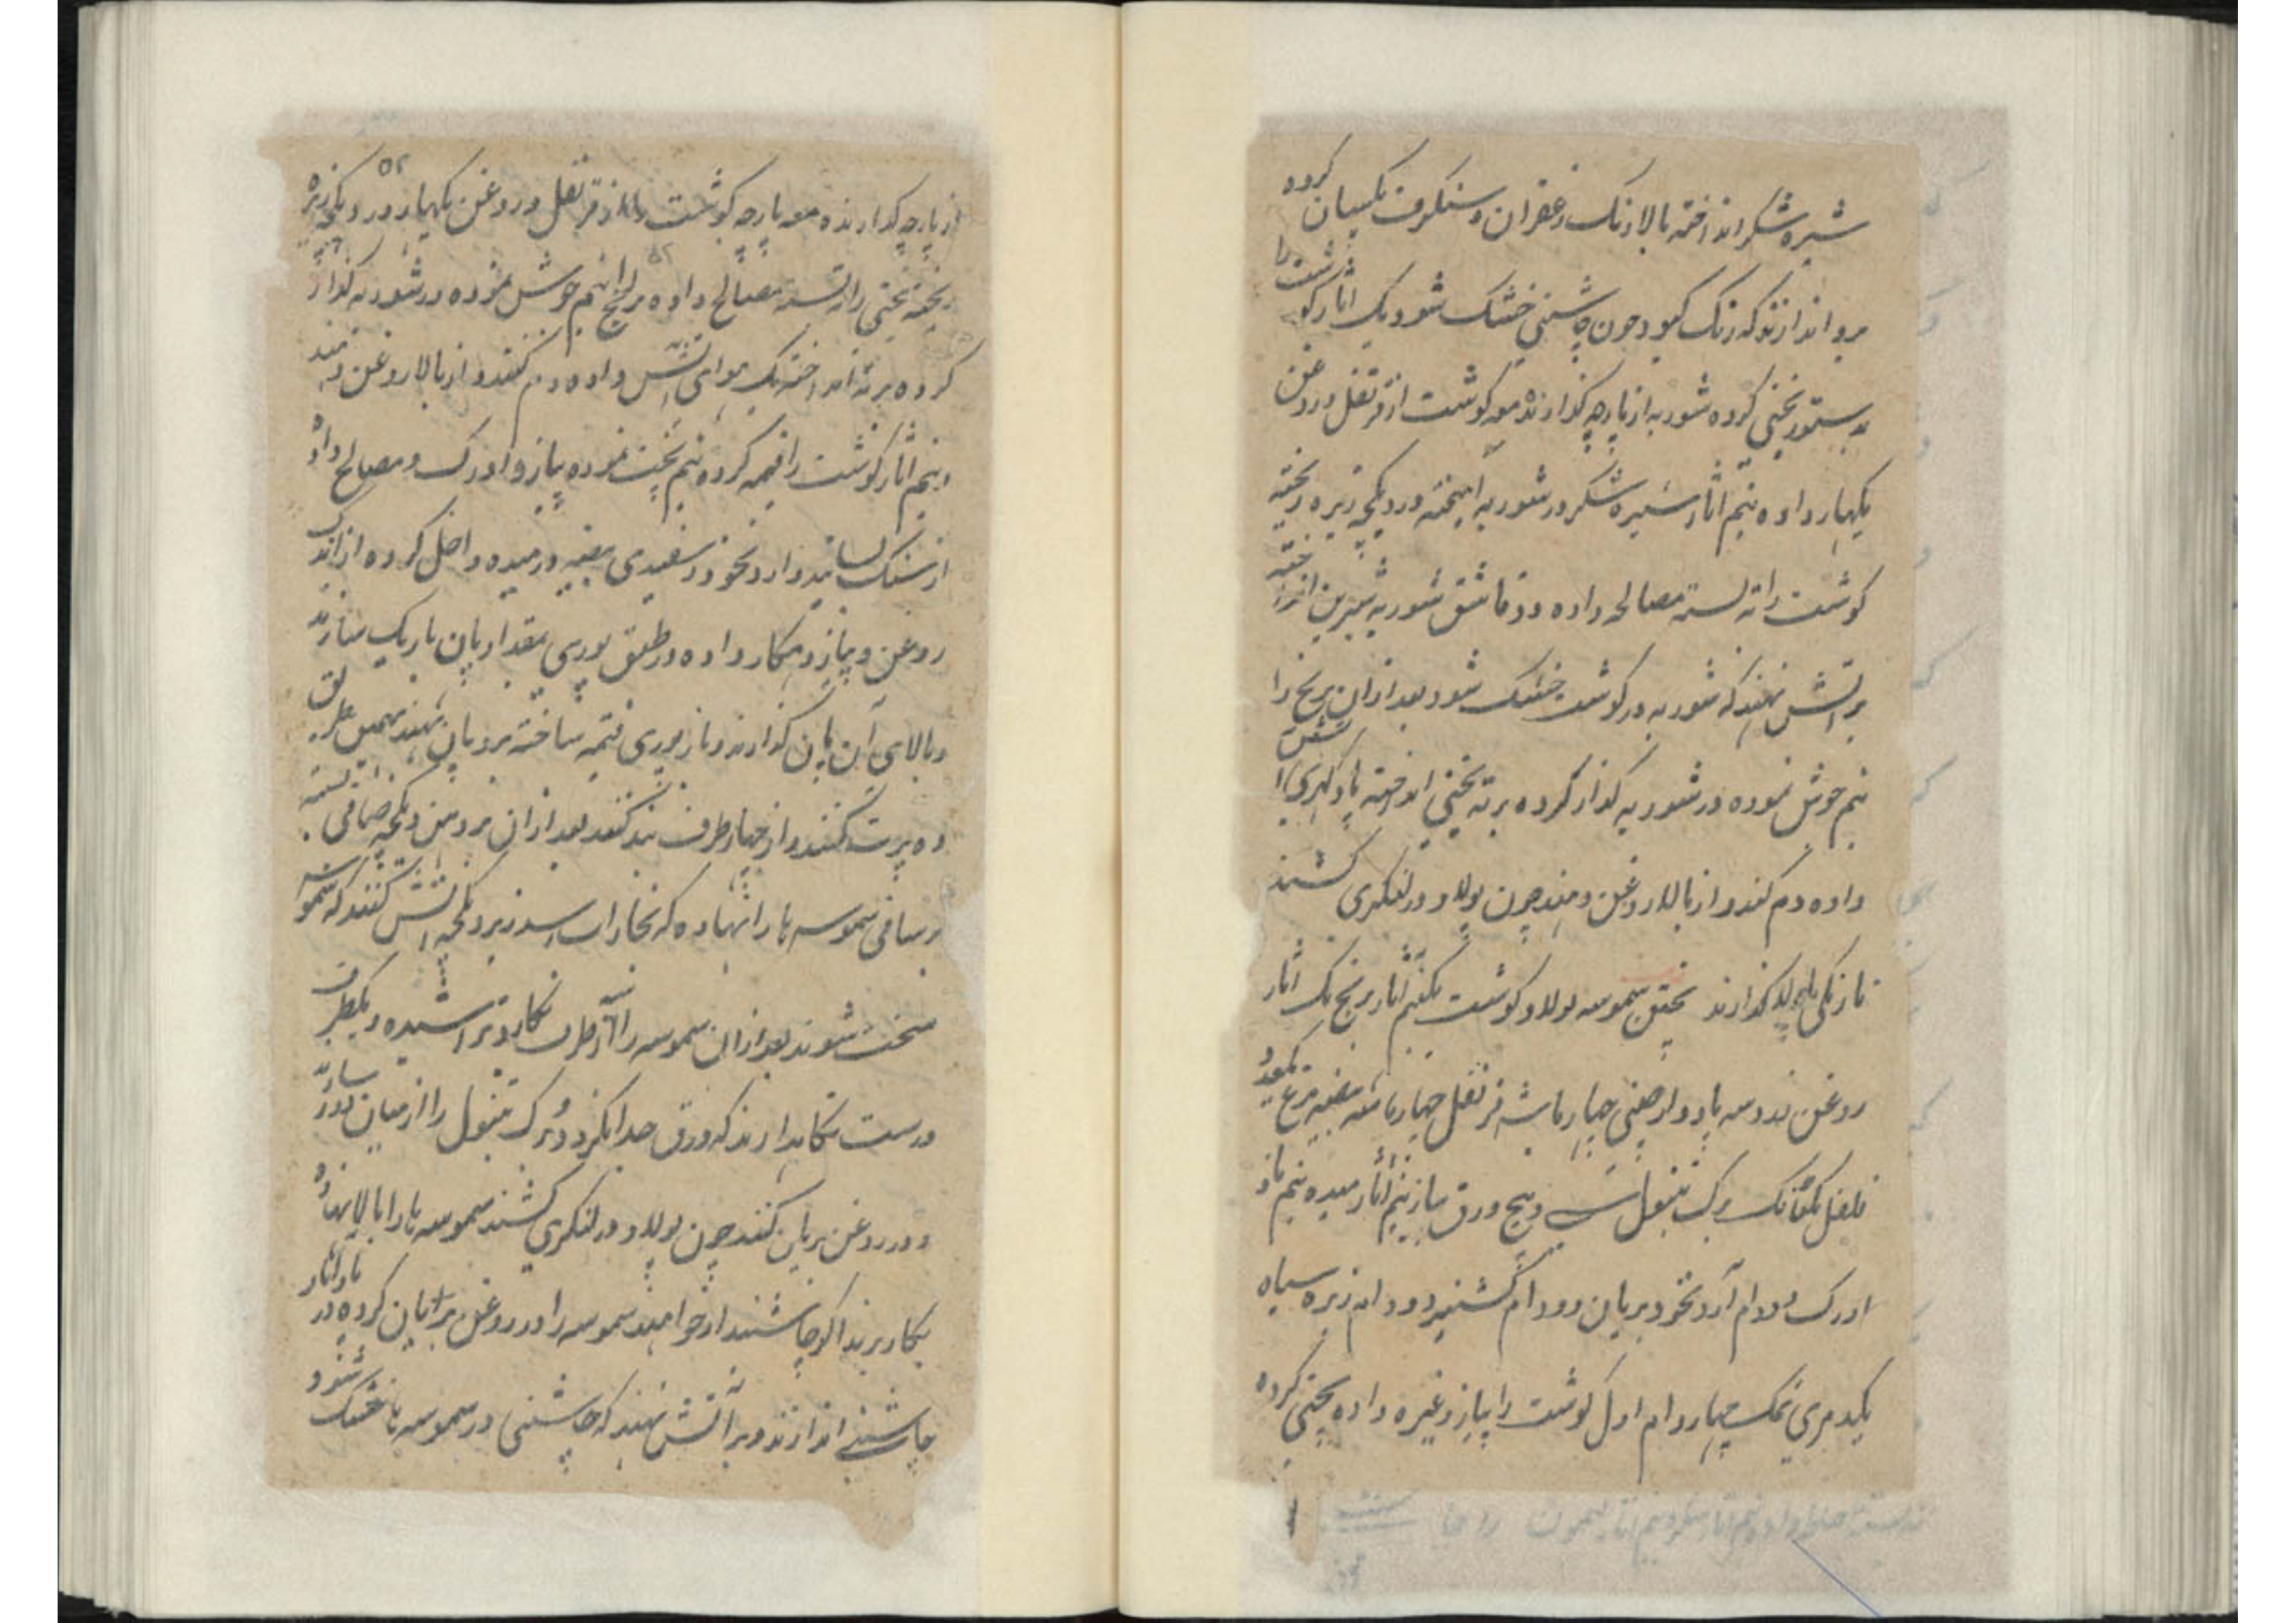 شیره شکر انداخته بالا رنگ زعفران و سنکرف یکسان کرده
برو اندازند که رنگ کیرد چون چاشنی خشک شود یک اثار کوشت را
بدستور یخنی کرده شوربه از پارچه کذارنده معه کوشت از قرنفل و روغن
بکهار داده نیم اثار شیره شکر در شوربه آمیخته در دیکچه زیره ریخته
کوشت را ته بسته مصالحه داده دو قاشق شوربه شیرین انداخته
بر آتش نهند که شوربه در کوشت خشک شود بعد ازان برنج را
نیم جوش نموده در شوربه کذار کرده بر ته یخنی انداخته پاو کهری آتش
داده دم کنند و از بالا روغن دهند چون پولاو در لنکری کشند
نارنکی بالای پولاو کذارند پختن سموسه پولاو کوشت یکنیم اثار برنج یک اثار
روغن زرد سه پاو دارچینی چهار ماشه قرنفل چهار ماشه بیضه مرغ یکعدد
فلفل یکتانک برک تنبول سی و پنج ورق پیاز نیم اثار میده نیم پاو
ادرک دو دام آرد نخود بریان دو دام کشنیز دو دام زیره سیاه
یکدمری نمک چهار دام اول کوشت را پیاز وغیره داده یخنی کرده
۵۲
از پارچه کذارنده معه پارچه کوشت را از قرنفل و روغن بکهار دهد و در دیکچه زیره
ریخته یخنی را ته بسته مصالح داده برنج را نیم جوش نموده در شوربه کذار
کرده بر ته انداخته یک هوای آتش داده دم کنند و از بالا روغن دهند
و نیم اثار کوشت را قیمه کرده نیم پخت نموده پیاز و ادرک و مصالح داده
از سنک بسایند و آرد نخود و سفیدی بیضه در میده داخل کرده از اندک
روغن و پیاز بکهار داده در طبق پوری بمقدار پان باریک سازند
و بالای آن پان کذارند و باز پوری قیمه ساخته بر پان نهند بهمین طریق
ده پرت کنند و از چهار طرف بند کنند بعد ازان بر دهن دیکچه صافی بسته
بر صافی سموسه ها را نهاده که بخار آب رسد زیر دیکچه آتش کنند که سموسه
سخت شوند بعد ازان سموسه را از طرف بکارد تراشیده و یکطرف
درست نکاهدارند که ورق جدا نکردد و برک تنبول را از میان دور سازند
و در روغن بریان کنند چون پولاو در لنکری کشند سموسه ها را بالا نهاده
بکار برند اکر چاشنیدار خواهند سموسه را در روغن بریان کرده در پاو اثار
چاشنی اندازند و بر آتش نهند که چاشنی در سموسه ها خشک شود